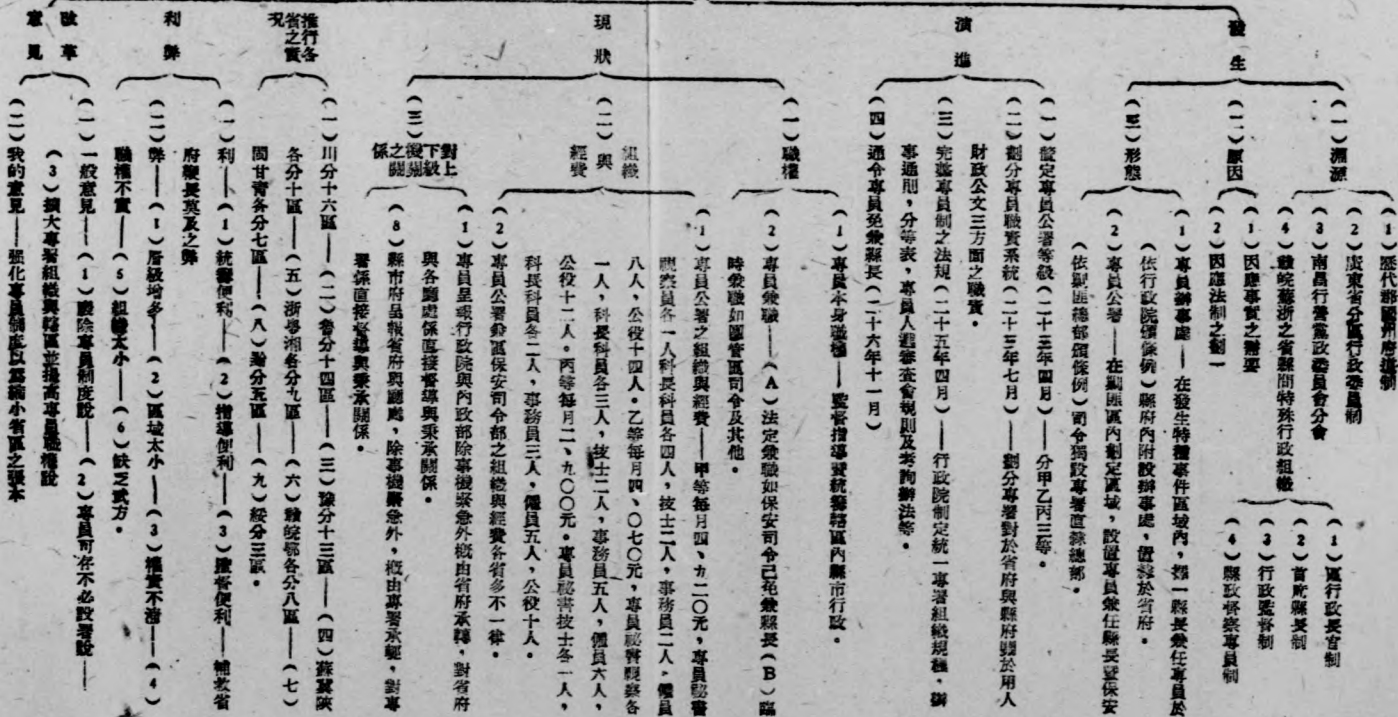 發生
(一)淵源
(1)歷代輔郡州府道制
(2)廣東省分區行政委員制
(3)南昌行營黨政委員會分會
(4)贛皖蘇浙之省縣間特殊行政組織
(1)區行政長官制
(2)首席縣長制
(3)行政監督制
(4)縣政督察專員制
(二)原因
(1)因應事實之需要
(2)因應法制之劃一
(三)形態
(1)專員辦事處——在發生特種事件區域內,擇一縣長兼任專員於
(依行政院頒條例)縣府內附設辦事處,直隸於省府。
(2)專員公署——在剿匪區內劃定區域,設置專員兼任縣長暨保安
(依剿匪總部頒條例)司令獨設專署直隸總部。
演進
(一)釐定專員公署等級(二十三年四月)——分甲乙丙三等。
(二)劃分專員職責系統(二十三年七月)——劃分專署對於省府與縣府關於用人
財政公文三方面之職責。
(三)完整專員制之法規(二十五年四月)——行政院制定統一專署組織規程,辦
事通則,分等表,專員人選審查會規則及考詢辦法等。
(四)通令專員免兼縣長(二十六年十一月)
現狀
(一)職權
(1)專員本身職權——監督指導暨統籌轄區內縣市行政。
(2)專員兼職——(A)法定兼職如保安司令已免兼縣長(B)臨
時兼職如團管區司令及其他。
(二)組織與經費
(1)專員公署之組織與經費——甲等每月四、九二〇元,專員祕書
視察員各一人科長科員各四人,技士二人,事務員二人,僱員
八人,公役十四人。乙等每月四、〇七〇元,專員祕書視察各
一人,科長科員各三人,技士二人,事務員五人,僱員六人,
公役十二人。丙等每月二、九〇〇元。專員祕書技士各一人,
科長科員各二人,事務員三人,僱員五人,公役十人。
(2)專員公署兼區保安司令部之組織與經費各省多不一律。
(三)對上下級機關之關係
(1)專員呈報行政院與內政部除事機緊急外概由省府承轉,對省府
與各廳處係直接督導與秉承關係。
(8)縣市府呈報省府與廳處,除事機緊急外,概由專署承轉,對專
署係直接督導與秉承關係。
推行各省之實況
(一)川分十六區——(二)魯分十四區——(三)豫分十三區——(四)蘇冀陝
各分十區——(五)浙粵湘各分九區——(六)贛皖鄂各分八區——(七)
閩甘青各分七區——(八)黔分五區——(九)綏分三區。
利弊
(一)利——(1)統籌便利——(2)指導便利——(3)監督便利——補救省
府鞭長莫及之弊
(二)弊——(1)層級增多——(2)區域太小——(3)權責不清——(4)
職權不實——(5)組織太小——(6)缺乏武力。
改革意見
(一)一般意見——(1)廢除專員制度說——(2)專員可存不必設署說——
(3)擴大專署組織與轄區並提高專員職權說
(二)我的意見——強化專員制度以爲縮小省區之張本